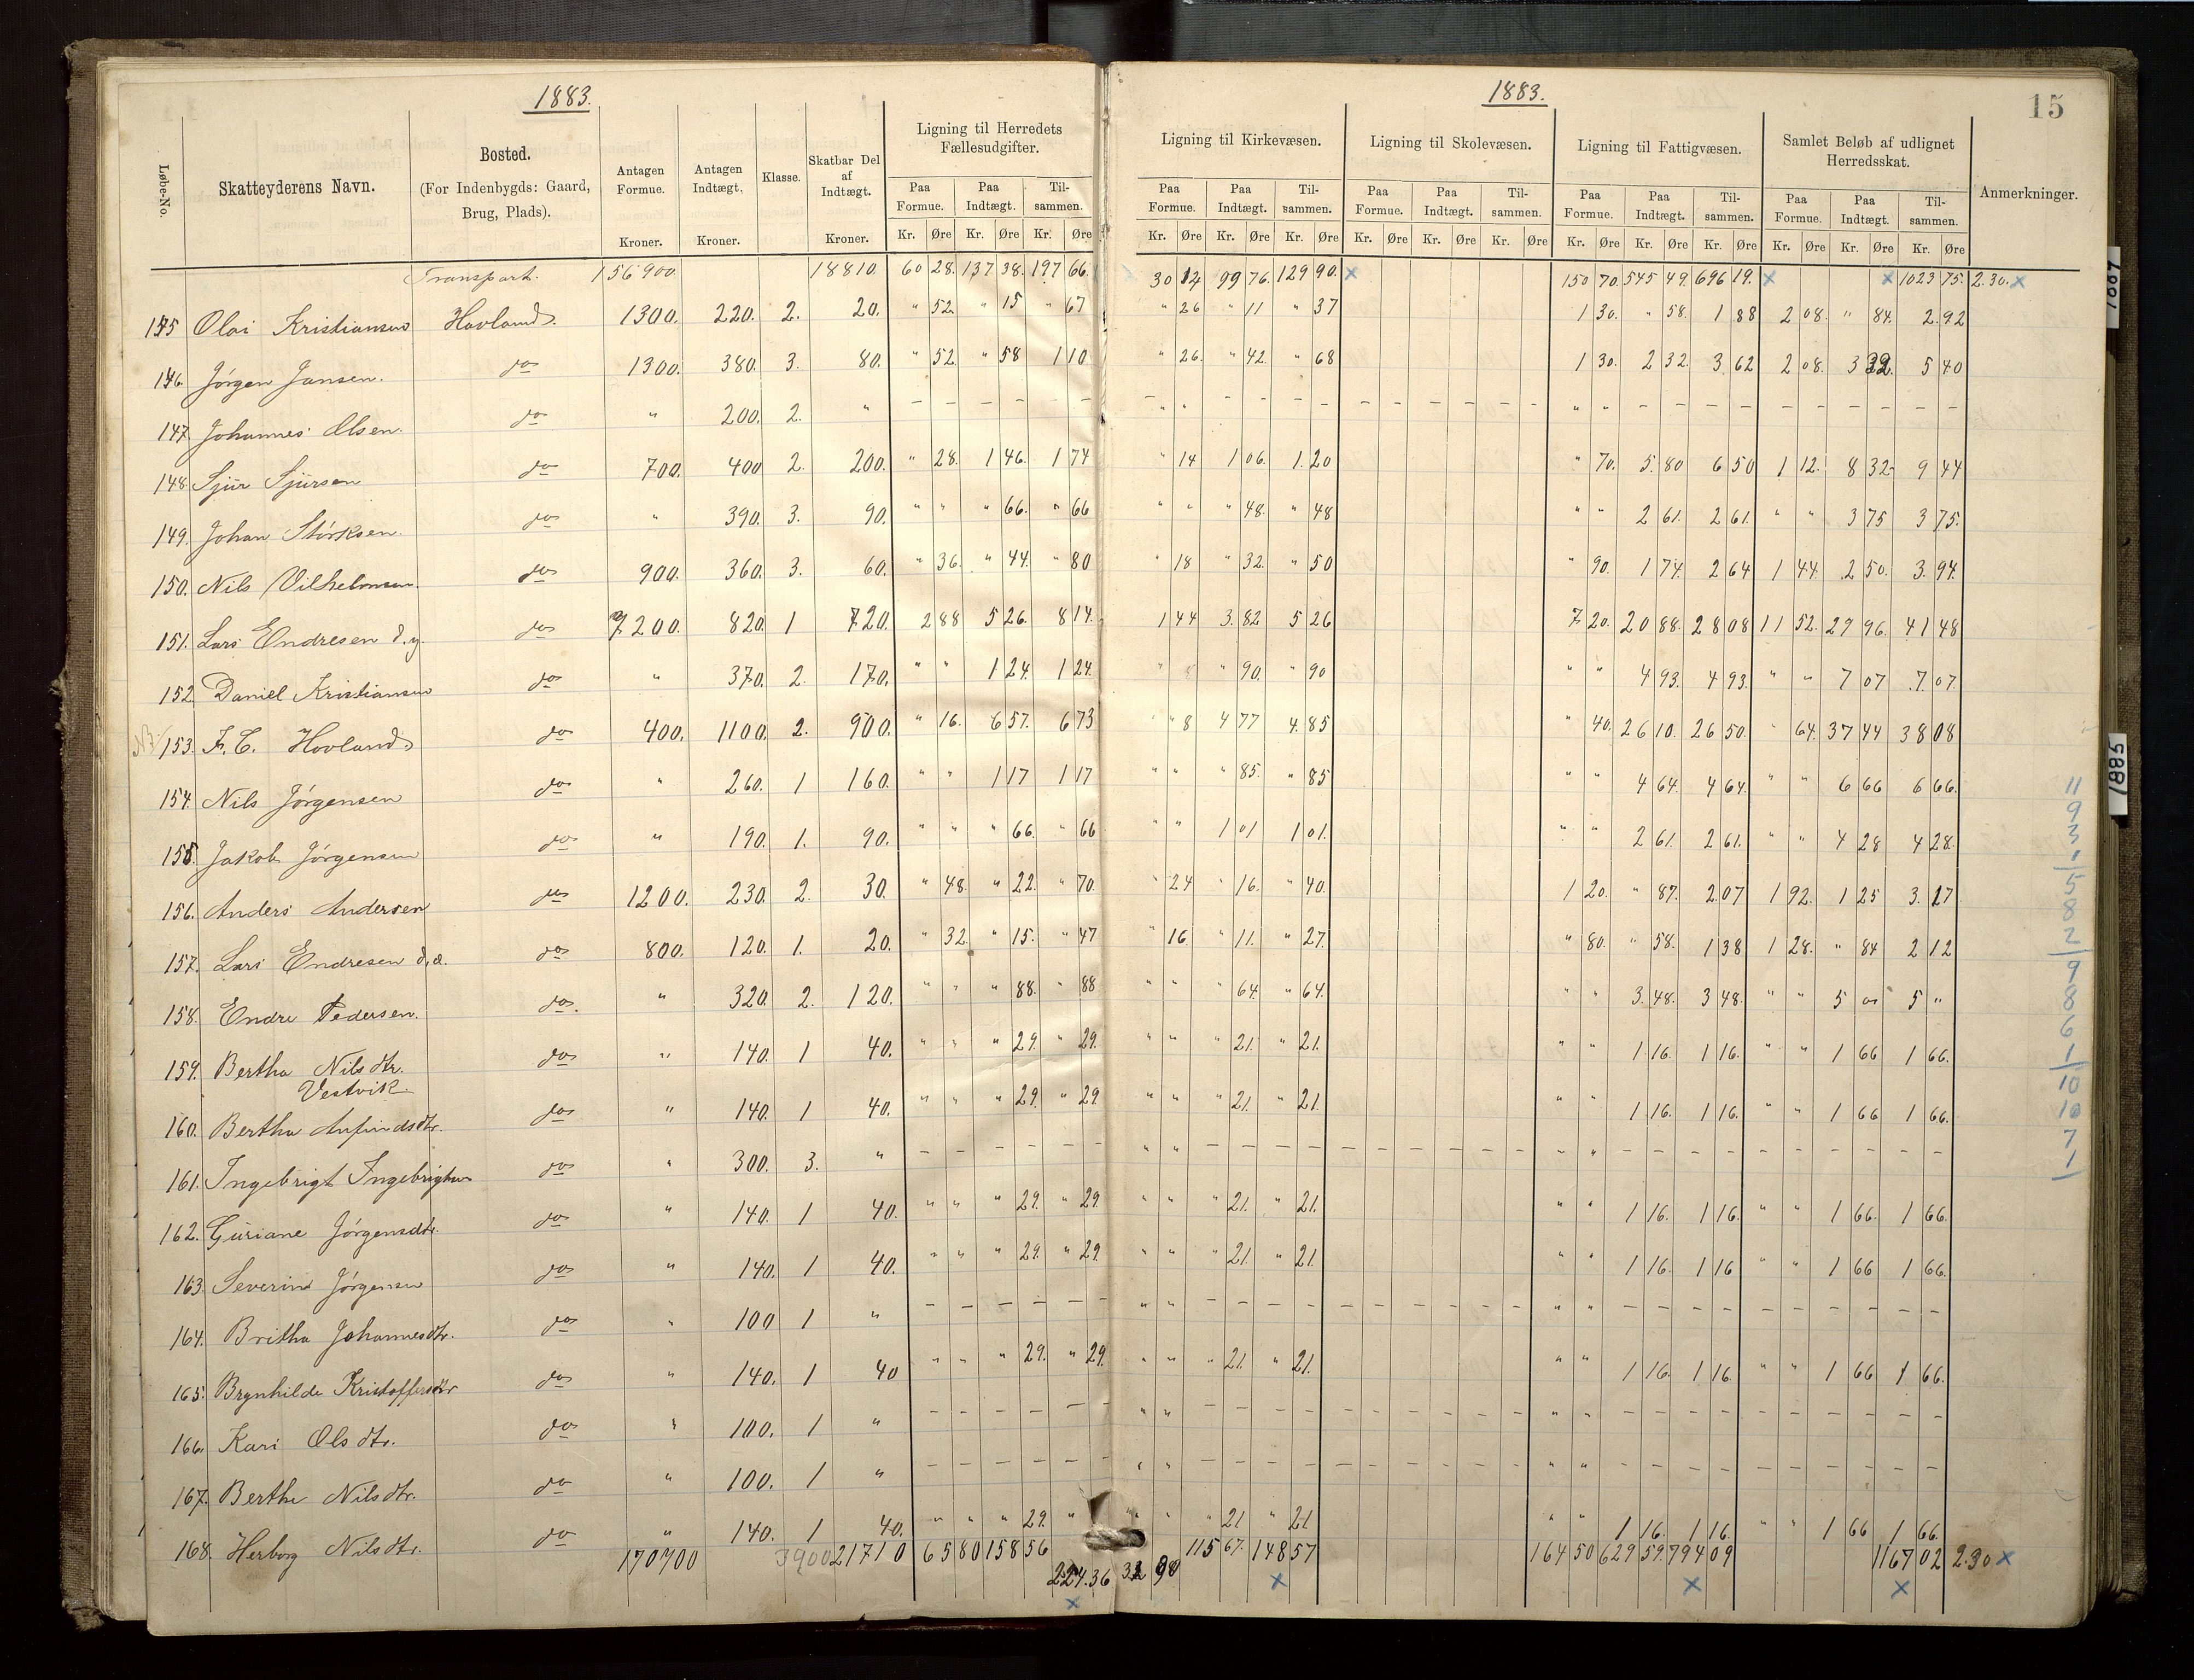 1883.
1883.
15
Løbe-No.
Skatteyderens Navn.
Bosted.
(For Indenbygds: Gaard,
Brug, Plads).
Antagen Formue. Kroner.
Antagen Indtægt. Kroner.
Klasse.
Skatbar Del af Indtægt. Kroner.
Ligning til Herredets Fællesudgifter.
Paa Formue. Paa Indtægt. Tilsammen.
Kr. Øre Kr. Øre Kr. Øre
Ligning til Kirkevæsen.
Paa Formue. Paa Indtægt. Tilsammen.
Kr. Øre Kr. Øre Kr. Øre
Ligning til Skolevæsen.
Paa Formue. Paa Indtægt. Tilsammen.
Kr. Øre Kr. Øre Kr. Øre
Ligning til Fattigvæsen.
Paa Formue. Paa Indtægt. Tilsammen.
Kr. Øre Kr. Øre Kr. Øre
Samlet Beløb af udlignet Herredsskat.
Paa Formue. Paa Indtægt. Tilsammen.
Kr. Øre Kr. Øre Kr. Øre
Anmerkninger.
Transport. 156900. 18810. 60 28. 137 38. 197 66. 30 14 99 76. 129 90. x 150 70. 545 49. 696 19. x x 1023 75. 2.30. x
145 Olai Kristiansen Hovland. 1300. 220. 2. 20. " 52. " 15 " 67 " 26 " 11 " 37 1 30. " 58. 1 88 2 08. " 84. 2.92
146. Jørgen Jansen. do 1300. 380. 3. 80. " 52. " 58 1 10 " 26. " 42. " 68 1 30. 2 32. 3 62 2 08. 3 32. 5 40
147. Johannes Olsen. do " 200. 2. " – – – – – – " " – – – – – – – – – – " " – – – – – – – – – –
148. Sjur Sjursen do 700. 400 2. 200. " 28. 1 46. 1 74 " 14 1 06. 1.20 " 70. 5.80 6 50 1 12. 8 32 9 44
149. Johan Störksen. do " 390. 3. 90. " " " 66. " 66 " " " 48. " 48 " " 2 61. 2 61. " " 3 75 3 75.
150. Nils Vilhelmsen. do 900. 360. 3. 60. " 36. " 44. " 80 " 18 " 32. " 50 " 90. 1 74. 2 64 1 44. 2 50. 3.94.
151. Lars Endresen d.y. do 7200. 820. 1 720. 2 88 5 26. 8 14. 1 44 3.82 5 26 7 20. 20 88. 28 08 11 52. 29 96. 41 48
152. Daniel Kristiansen do " 370. 2. 170. " " 1 24. 1 24. " " " 90. " 90 " " 4 93. 4 93. " " 7 07 7.07.
NB. 153. F. C. Hovland do 400. 1100. 2. 900. " 16. 6 57. 6 73 " 8 4 77 4.85 " 40. 26 10. 26 50. " 64. 37 44 38 08
154. Nils Jørgensen do " 260. 1 160. " " 1 17 1 17 " " " 85. " 85 " " 4 64. 4 64. " " 6 66 6 66.
155. Jakob Jørgensen do " 190. 1. 90. " " " 66. " 66 " " 1 01 1 01. " " 2 61. 2 61. " " 4 28 4 28.
156. Anders Andersen do 1200. 230. 2. 30. " 48. " 22. " 70. " 24 " 16. " 40. 1 20. " 87. 2.07 1 92. 1 25 3.17
157. Lars Endresen d.æ. do 800. 120. 1. 20. " 32. " 15. " 47 " 16. " 11. " 27. " 80. " 58. 1 38 1 28. " 84 2 12
158. Endre Pedersen. do. " 320. 2. 120. " " " 88. " 88 " " " 64. " 64. " " 3.48. 3 48. " " 5 00 5 "
159. Bertha Nilsdtr. do " 140. 1 40. " " " 29. " 29. " " " 21. " 21. " " 1 16. 1 16. " " 1 66 1 66.
Vestvik
160. Bertha Anfindsdtr. do " 140. 1 40. " " " 29. " 29 " " " 21. " 21. " " 1 16. 1 16. " " 1 66 1 66.
161. Ingebrigt Ingebrigtsen do " 300. 3. " – – – – – – " " – – – – – – – – – – " " – – – – – – – – – –
162. Guriane Jørgensdtr. do " 140. 1 40. " " " 29. " 29. " " " 21. " 21. " " 1 16. 1 16. " " 1 66. 1 66.
163. Severine Jørgensen do " 140. 1 40. " " " 29. " 29. " " " 21 " 21. " " 1 16. 1 16 " " 1 66 1 66.
164. Britha Johannesdtr. do " 100 1 " – – – – – – " " – – – – – – – – – – " " – – – – – – – – – –
165. Brynhilde Kristoffersdtr do " 140. 1 40 " " " 29. " 29. " " " 21. " 21. " " 1 16. 1 16. " " 1 66 1 66.
166. Kari Olsdtr. do " 100. 1 " – – – – – – " " – – – – – – – – – – " " – – – – – – – – – –
167. Berthe Nilsdtr. do " 100. 1 " – – – – – – " " – – – – – – – – – – " " – – – – – – – – – –
168. Herborg Nilsdtr. do " 140. 1 40. " " " 29. " " " " 21 " 21 " " 1 16. 1 16. " " 1 66 1 66.
170700 3900 21710 65 80 158 56 224.36 32 90 115 67. 148 57 164 50 629 59. 794 09 1167 02 2.30 x
x x x x
11
9
3
1
5
8
2
9
8
6
1
10
10
7
1
1887
1885